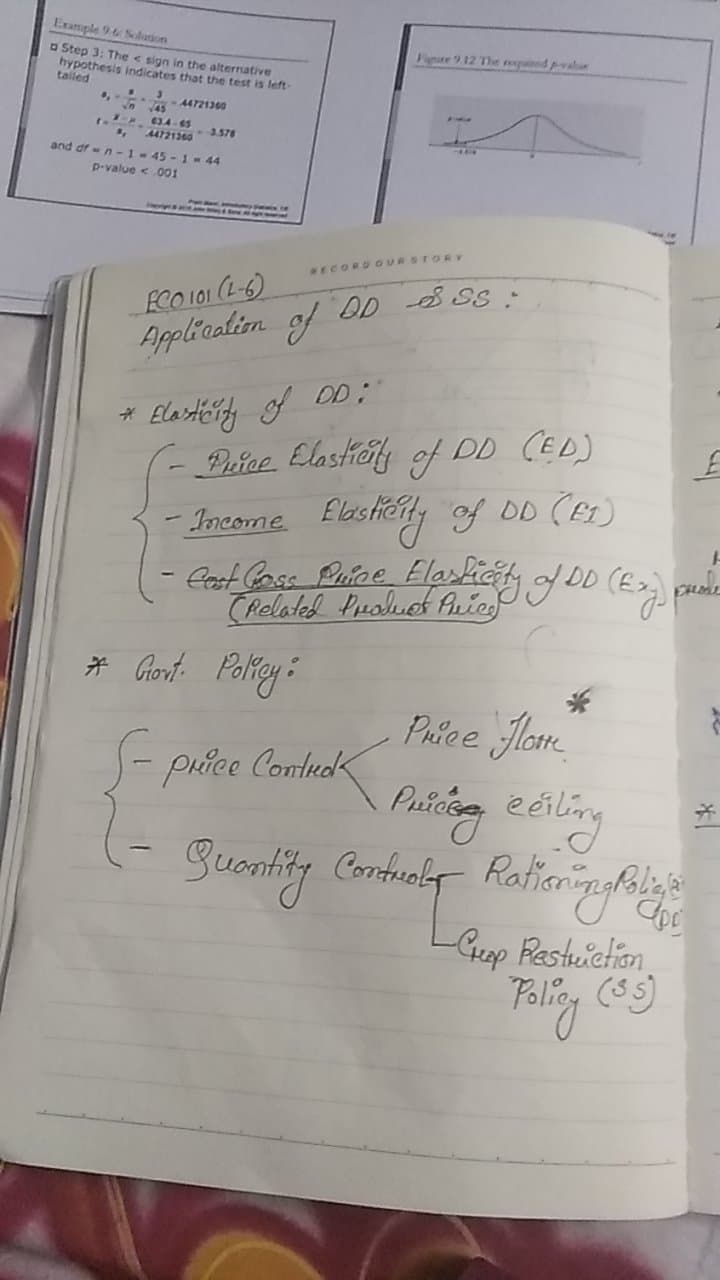 Example 9.6: Solution
Step 3: The < sign in the alternative
hypothesis indicates that the test is left-
tailed
and df = n - 1 = 45 - 1 = 44
p-value < .001
Figure 9.12 The required p-value
RECORD OUR STORY
ECO 101 (L-6)
Application of DD & SS :
* Elasticity of DD :
- Price Elasticity of DD (ED)
- Income Elasticity of DD (EI)
- Cross Price Elasticity of DD (Exy)
(Related Product Price)
* Govt. Policy :
- Price Control
Price floor *
Price ceiling
- Quantity Control
Rationing Policy
Crop Restriction
Policy (SS)